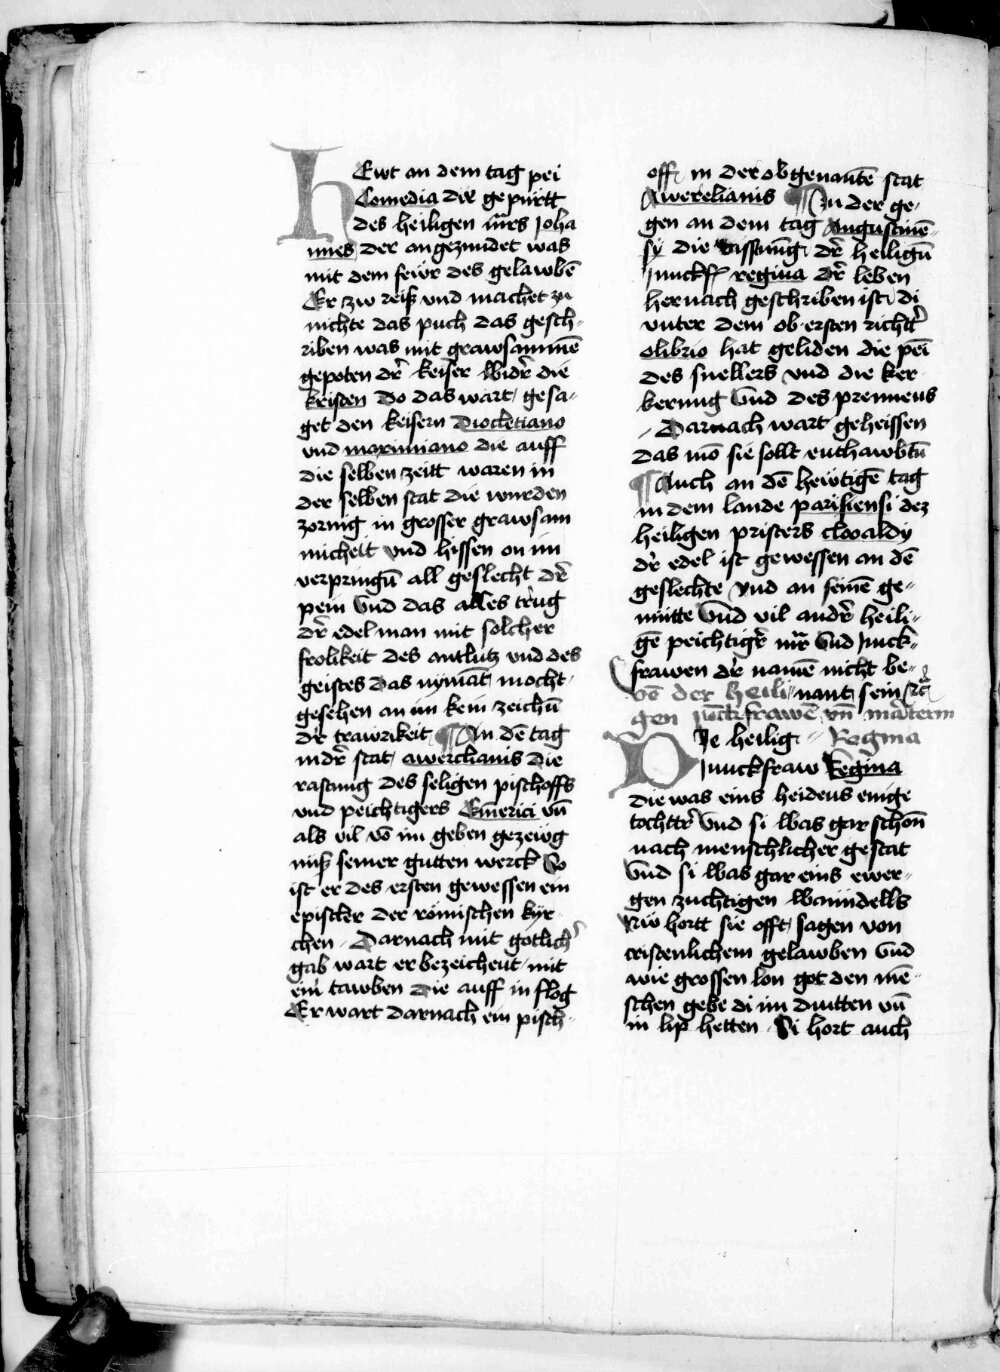 HEwt an dem tag pei
Comedia die gepurtt
des heiligen mr̄s Joha
nnes der angezundet was
mit dem fewr des gelawbē
Er zw reiß vnd machet zu
nichte das puch das gesch-
riben was mit grawsammē
gepoten dr̄ keiser widr̄ die
kristen Do das wart gesa-
get den keisern Diocletiano
vnd maximiano die auff
die selben zeitt waren in
der selben stat die wurden
zornig in grosser grawsam
micheit vnd hissen on im
verpringū all geslecht dr̄
pein Vnd das alles trug
dr̄ edel man mit solcher
frolikeit des antlutz vnd des
geistes Das nymāt mocht
gesehen an im kein zeichū
dr̄ trawrikeit ¶ In dē tag
in dr̄ stat awerelianis die
rastung des seligen pischoffs
vnd peichtigers Emerici vn̄
als vil vō im geben gezewg
nuß seiner gutten werck So
ist er des ersten gewessen ein
epistler der römischen kyr
chen Darnach mit gotlich̄
gab wart er bezeichent mit
ein tawben die auff in flog
Er wart darnach ein pisch-
off in der obgenantē stat
Awerelianis ¶ In der ge-
gen an dem tag Augustinē-
sy die vssrung dr̄ heiligū
Junckf̄ regina dr̄ leben
hernach geschriben ist di
vnter dem ob ersten richtt̄
olibrio hat geliden die pei
des snellers vnd die ker
kerung Vnd des prennens
Darnach wart geheissen
das mō sie sollt enthawbtū
¶ Auch an dē hewtigē tag
in dem lande parisiensi dez
heiligen pristers clooaldy
dr̄ edel ist gewessen an dē
geslechte Vnd an seinē ge-
mütte Vnd vil andr̄ heili-
gē peichtigr̄ mr̄ Vnd Junck-
frawen dr̄ namē nicht be-
nant sein
vō der heili
gen Junckfrawē vn̄ martrerin
Regina
DIe heilig
Junckfraw Regina
die was eins heidens einige
tochttr̄ Vnd si was gar schon
nach menschlicher gestat
Vnd si was gar eins ewer-
gen zuchtigen wanndells
Nw hortt sie offt sagen von
cristenlichem gelawben Vnd
wie grossen lon got den mē-
schen gebe di im dintten vn̄
in lip hetten Si hort auch